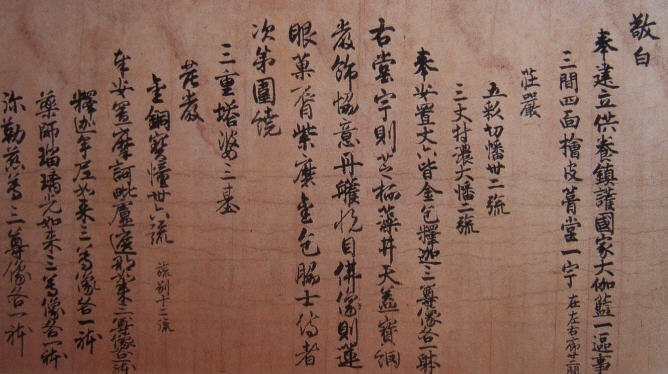 敬白
奉建立供養鎮護國家大伽藍一區事
三間四面檜皮葺堂一宇 在左右廊廿二間
莊嚴
五彩切幡卅二旒
三丈村濃大幡二旒
奉安置丈六皆金色釋迦三尊像各一躰
右堂宇則芝栭藻井天蓋寶網
嚴飾協意丹雘悅目佛像則蓮
眼菓脣紫磨金色脇士侍者
次第圍繞
三重塔婆三基
莊嚴
金銅寶幢卅六旒 旒別十二流
奉安置摩訶毗盧遮那如來三尊像各一躰
釋迦牟尼如来三尊像各一躰
藥師瑠璃光如来三尊像各一躰
弥勒慈尊三尊像各一躰